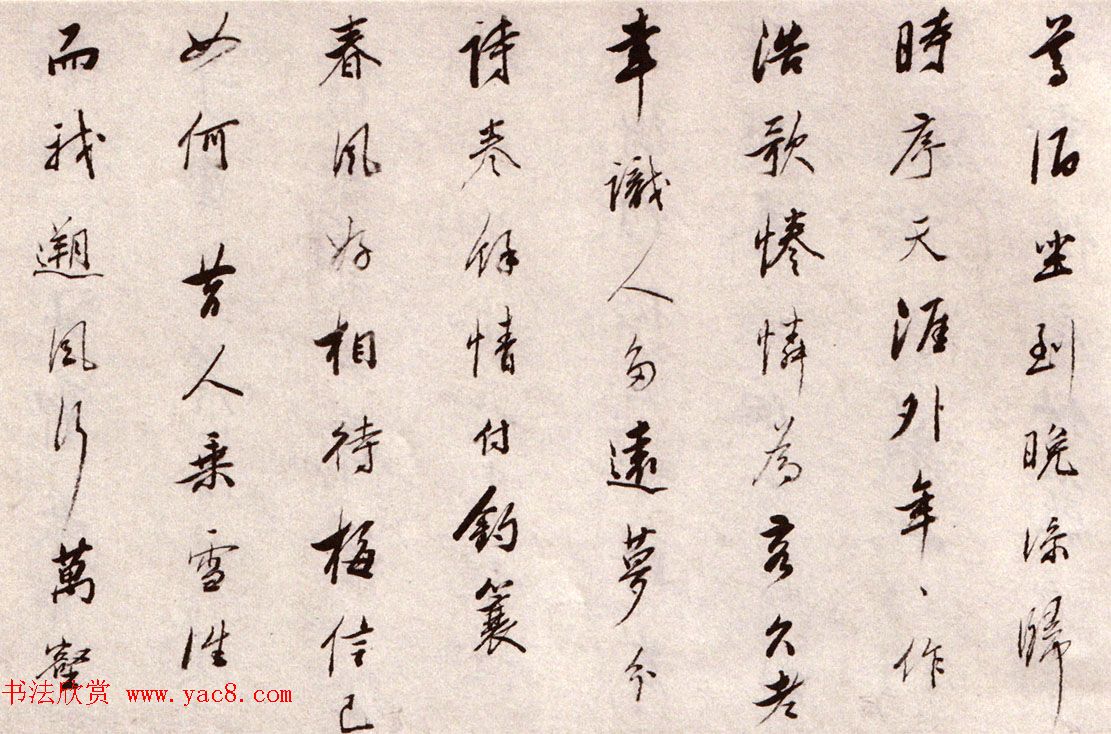 尊酒坐到晚涼歸
時序天涯外年〻作
浩歌惓憐為客久老
幸識人多遠夢分
詩卷餘情付釣簑
春風好相待梅信已
如何昔人乗雪往
而我遡風行萬壑
书法欣赏 www.yac8.com